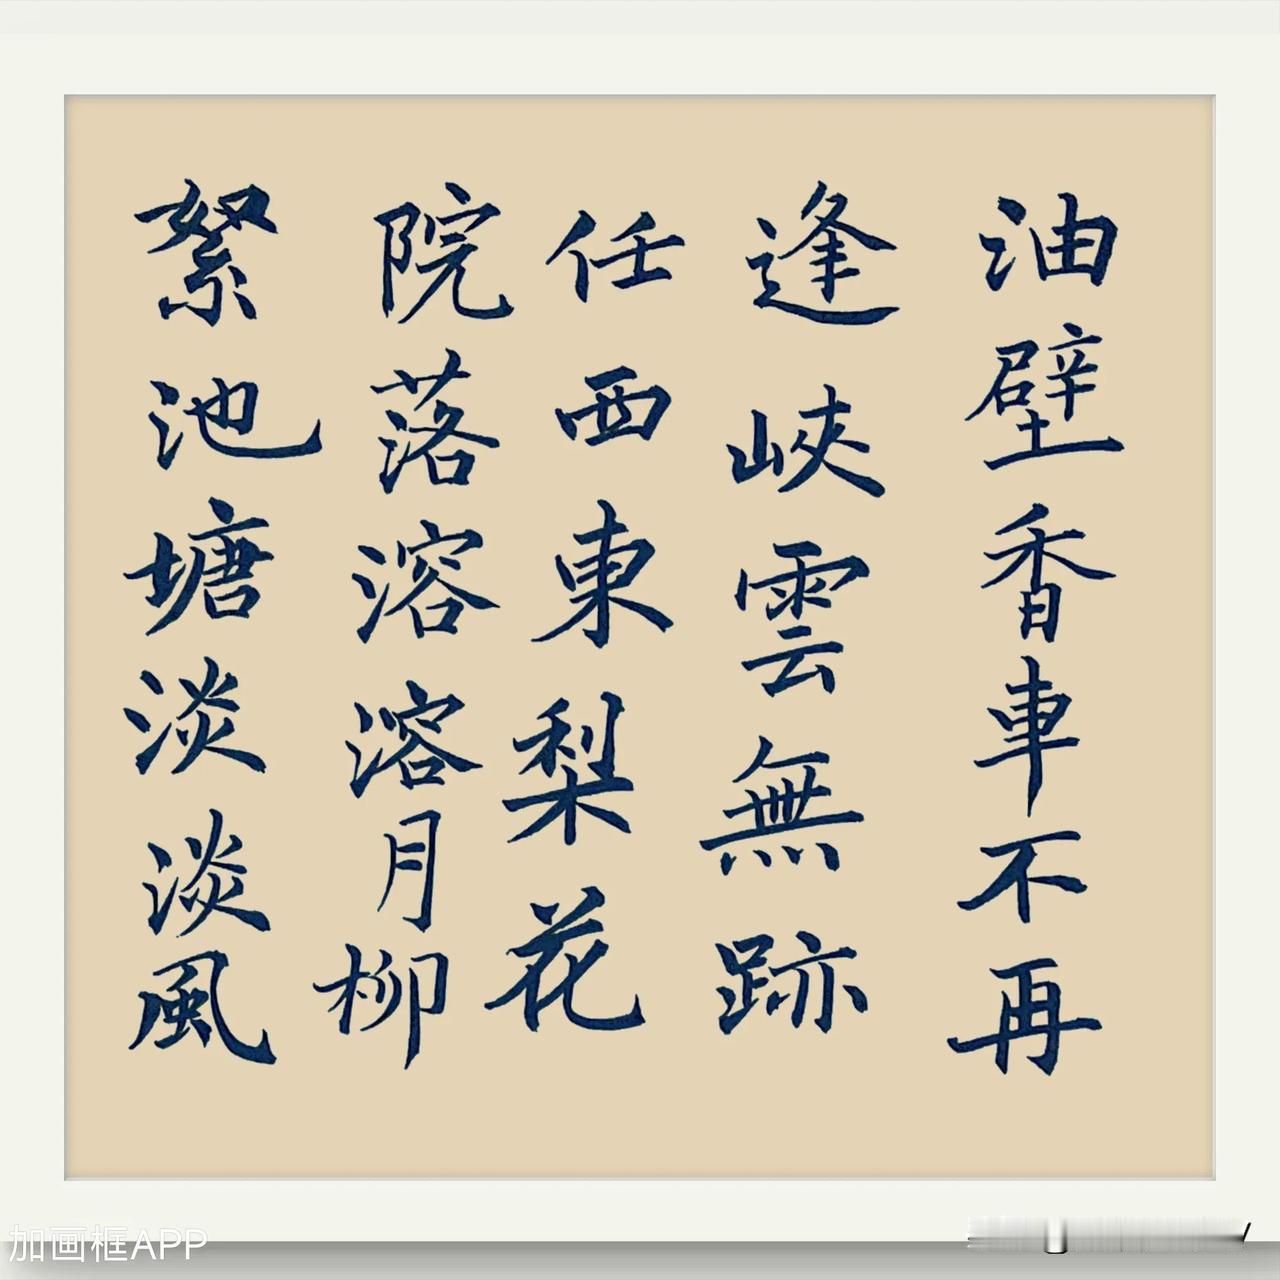 油壁香車不再
逢峽雲無跡
任西東梨花
院落溶溶月柳
絮池塘淡淡風
加画框APP